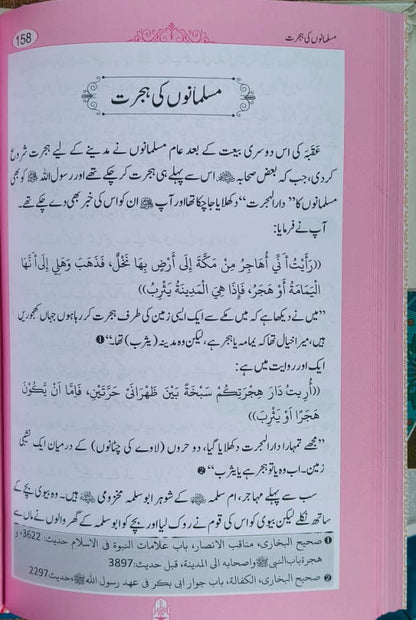 158
مسلمانوں کی ہجرت
مسلمانوں کی ہجرت
عَقَبَہ کی اس دوسری بیعت کے بعد عام مسلمانوں نے مدینے کے لیے ہجرت شروع
کردی، جب کہ بعض صحابہ ﷢ اس سے پہلے ہی ہجرت کر چکے تھے اور رسول اللہ ﷺ کو بھی
مسلمانوں کا ”دار الہجرت“ دکھلایا جا چکا تھا اور آپ ﷺ ان کو اس کی خبر بھی دے چکے تھے۔
آپ نے فرمایا:
((رَأَيْتُ أَنِّي أُهَاجِرُ مِنْ مَكَّةَ إِلَى أَرْضٍ بِهَا نَخْلٌ، فَذَهَبَ وَهَلِي إِلَى أَنَّهَا
الْيَمَامَةُ أَوْ هَجَرُ، فَإِذَا هِيَ الْمَدِينَةُ يَثْرِبُ))
”میں نے دیکھا ہے کہ میں مکے سے ایک ایسی زمین کی طرف ہجرت کر رہا ہوں جہاں کھجوریں
ہیں، میرا خیال تھا کہ یمامہ یا ہجر ہے، لیکن وہ مدینہ (یثرب) تھا۔“ ❶
ایک اور روایت میں ہے:
((أُرِيتُ دَارَ هِجْرَتِكُمْ سَبْخَةً بَيْنَ ظَهْرَانَيْ حَرَّتَيْنِ، فَإِمَّا أَنْ يَّكُوْنَ
هَجَرًا أَوْ يَثْرِبَ))
”مجھے تمہارا دار الہجرت دکھلایا گیا، دو حروں (لاوے کی چٹانوں) کے درمیان ایک نشیبی
زمین۔ اب وہ یا تو ہجر ہے یا یثرب“ ❷
سب سے پہلے مہاجر، ام سلمہ ﷞ کے شوہر ابو سلمہ مخزومی ﷜ ہیں۔ وہ بیوی بچے کے
ساتھ نکلے لیکن بیوی کو اس کی قوم نے روک لیا اور بچے کو ابو سلمہ کے گھر والوں نے ماں سے
❶ صحيح البخاری، مناقب الانصار، باب علامات النبوة فی الاسلام حدیث: 3622، و
هجرة باب النبی ﷺ واصحابه الی المدينة، قبل حدیث: 3897
❷ صحيح البخاری، الكفالة، باب جوار ابی بكر فی عهد رسول الله ﷺ، حدیث 2297